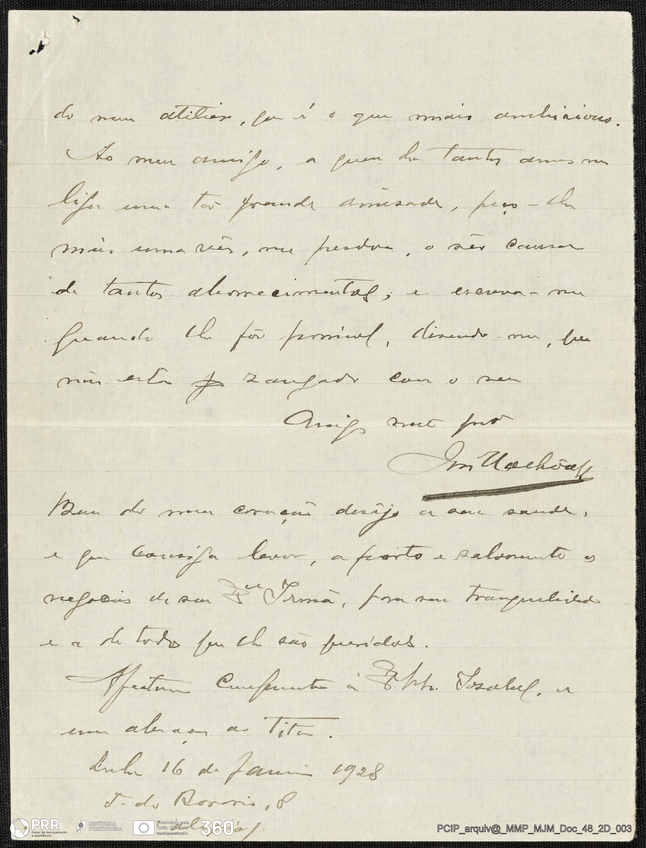 do meu atelier, que é o que mais ambiciono.
Ao meu amigo, a quem ha tantos anos me
liga uma tão grande amisade, peço-lhe
mais uma vês, me perdoe, o sêr causa
de tantos aborrecimentos, e escreva-me
quando lhe fôr possivel, disendo-me, que
não está zangado com o seu
Amigo mto
José Malhôa
Bem do meu coração desejo a sua saude,
e que consiga levar, a porto e salvamento os
negocios de seu Irmão, para seu tranquilidade
e a de todos que lhe são queridos.
Afectuosos cumprimentos à Isabel, e
um abraço ao Titu.
16 de Janeiro 1928
8
PRR
REPÚBLICA PORTUGUESA
360
PCIP_arquiv@_MMP_MJM_Doc_48_2D_003